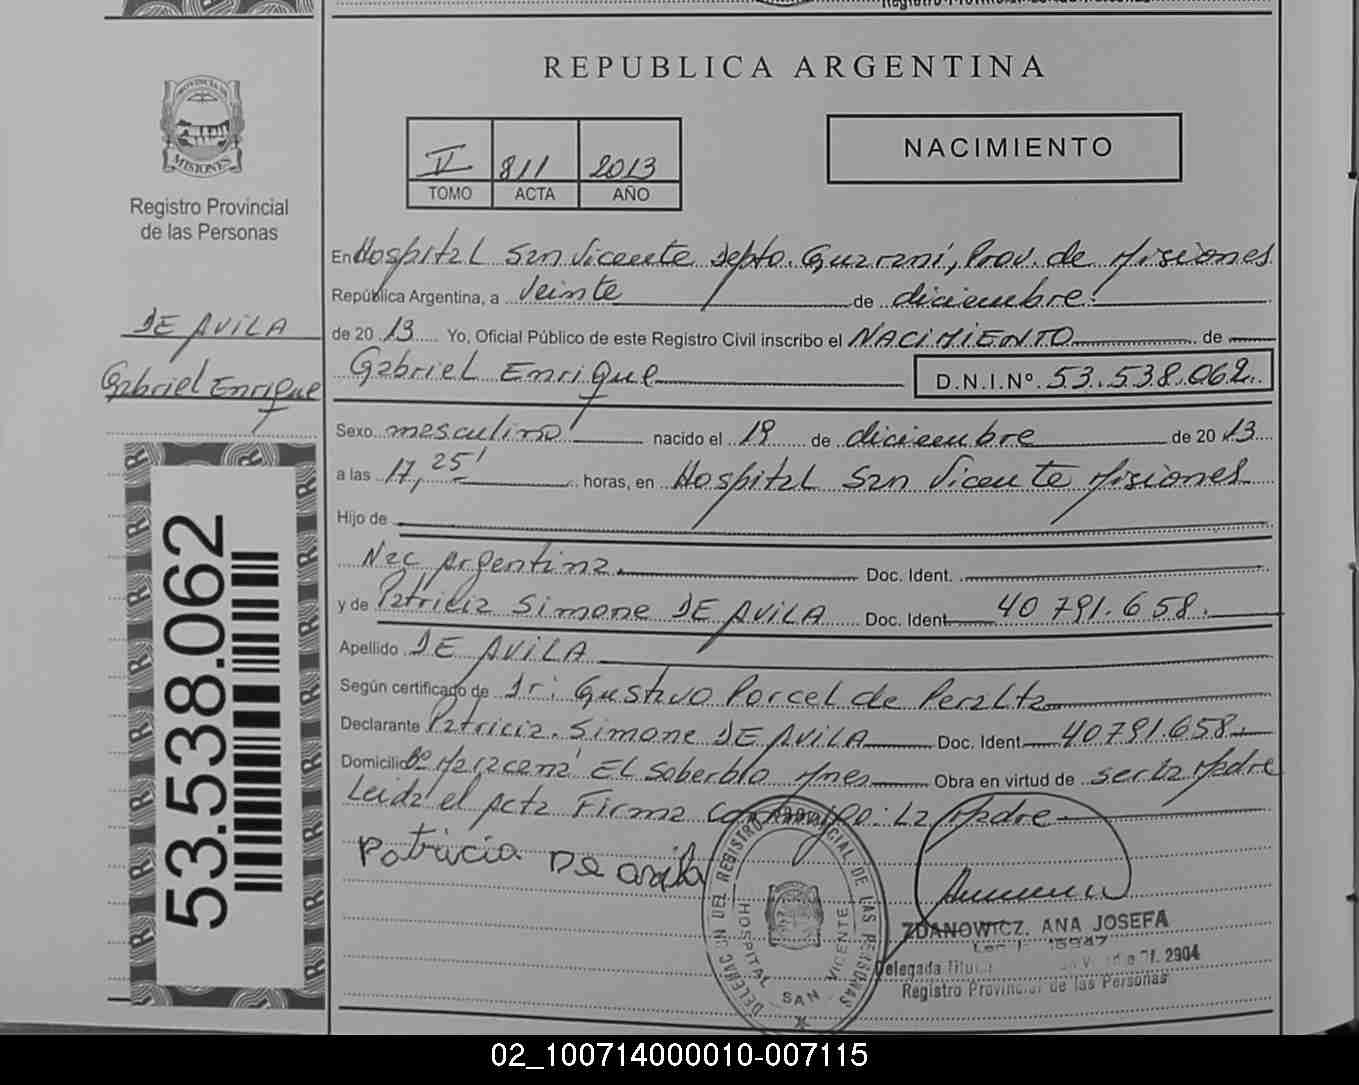 REPUBLICA ARGENTINA
PROVINCIA DE
MISIONES
Registro Provincial
de las Personas
V 811 2013
TOMO ACTA AÑO
NACIMIENTO
DE AVILA
Gabriel Enrique
53.538.062
En Hospital San Vicente Depto. Guarani, Prov. de Misiones
República Argentina, a veinte de diciembre
de 20 13 Yo, Oficial Público de este Registro Civil inscribo el NACIMIENTO de
Gabriel Enrique D.N.I.Nº 53.538.062
Sexo masculino nacido el 19 de diciembre de 20 13
a las 17,25' horas, en Hospital San Vicente Misiones
Hijo de
Nac Argentina Doc. Ident.
y de Patricia Simone DE AVILA Doc. Ident 40 791.658.
Apellido DE AVILA
Según certificado de Dr. Gustavo Porcel de Peralta
Declarante Patricia Simone DE AVILA Doc. Ident 40791.658
Domicilio Bº Maracaná El Soberbio Mnes Obra en virtud de ser la Madre
Leida el Acta Firma conmigo: La Madre
Patricia De avila
DELEGACION DEL REGISTRO PROVINCIAL DE LAS PERSONAS
HOSPITAL SAN VICENTE
ZDANOWICZ, ANA JOSEFA
Delegada Titu 2904
Registro Provincial de las Personas
02_100714000010-007115